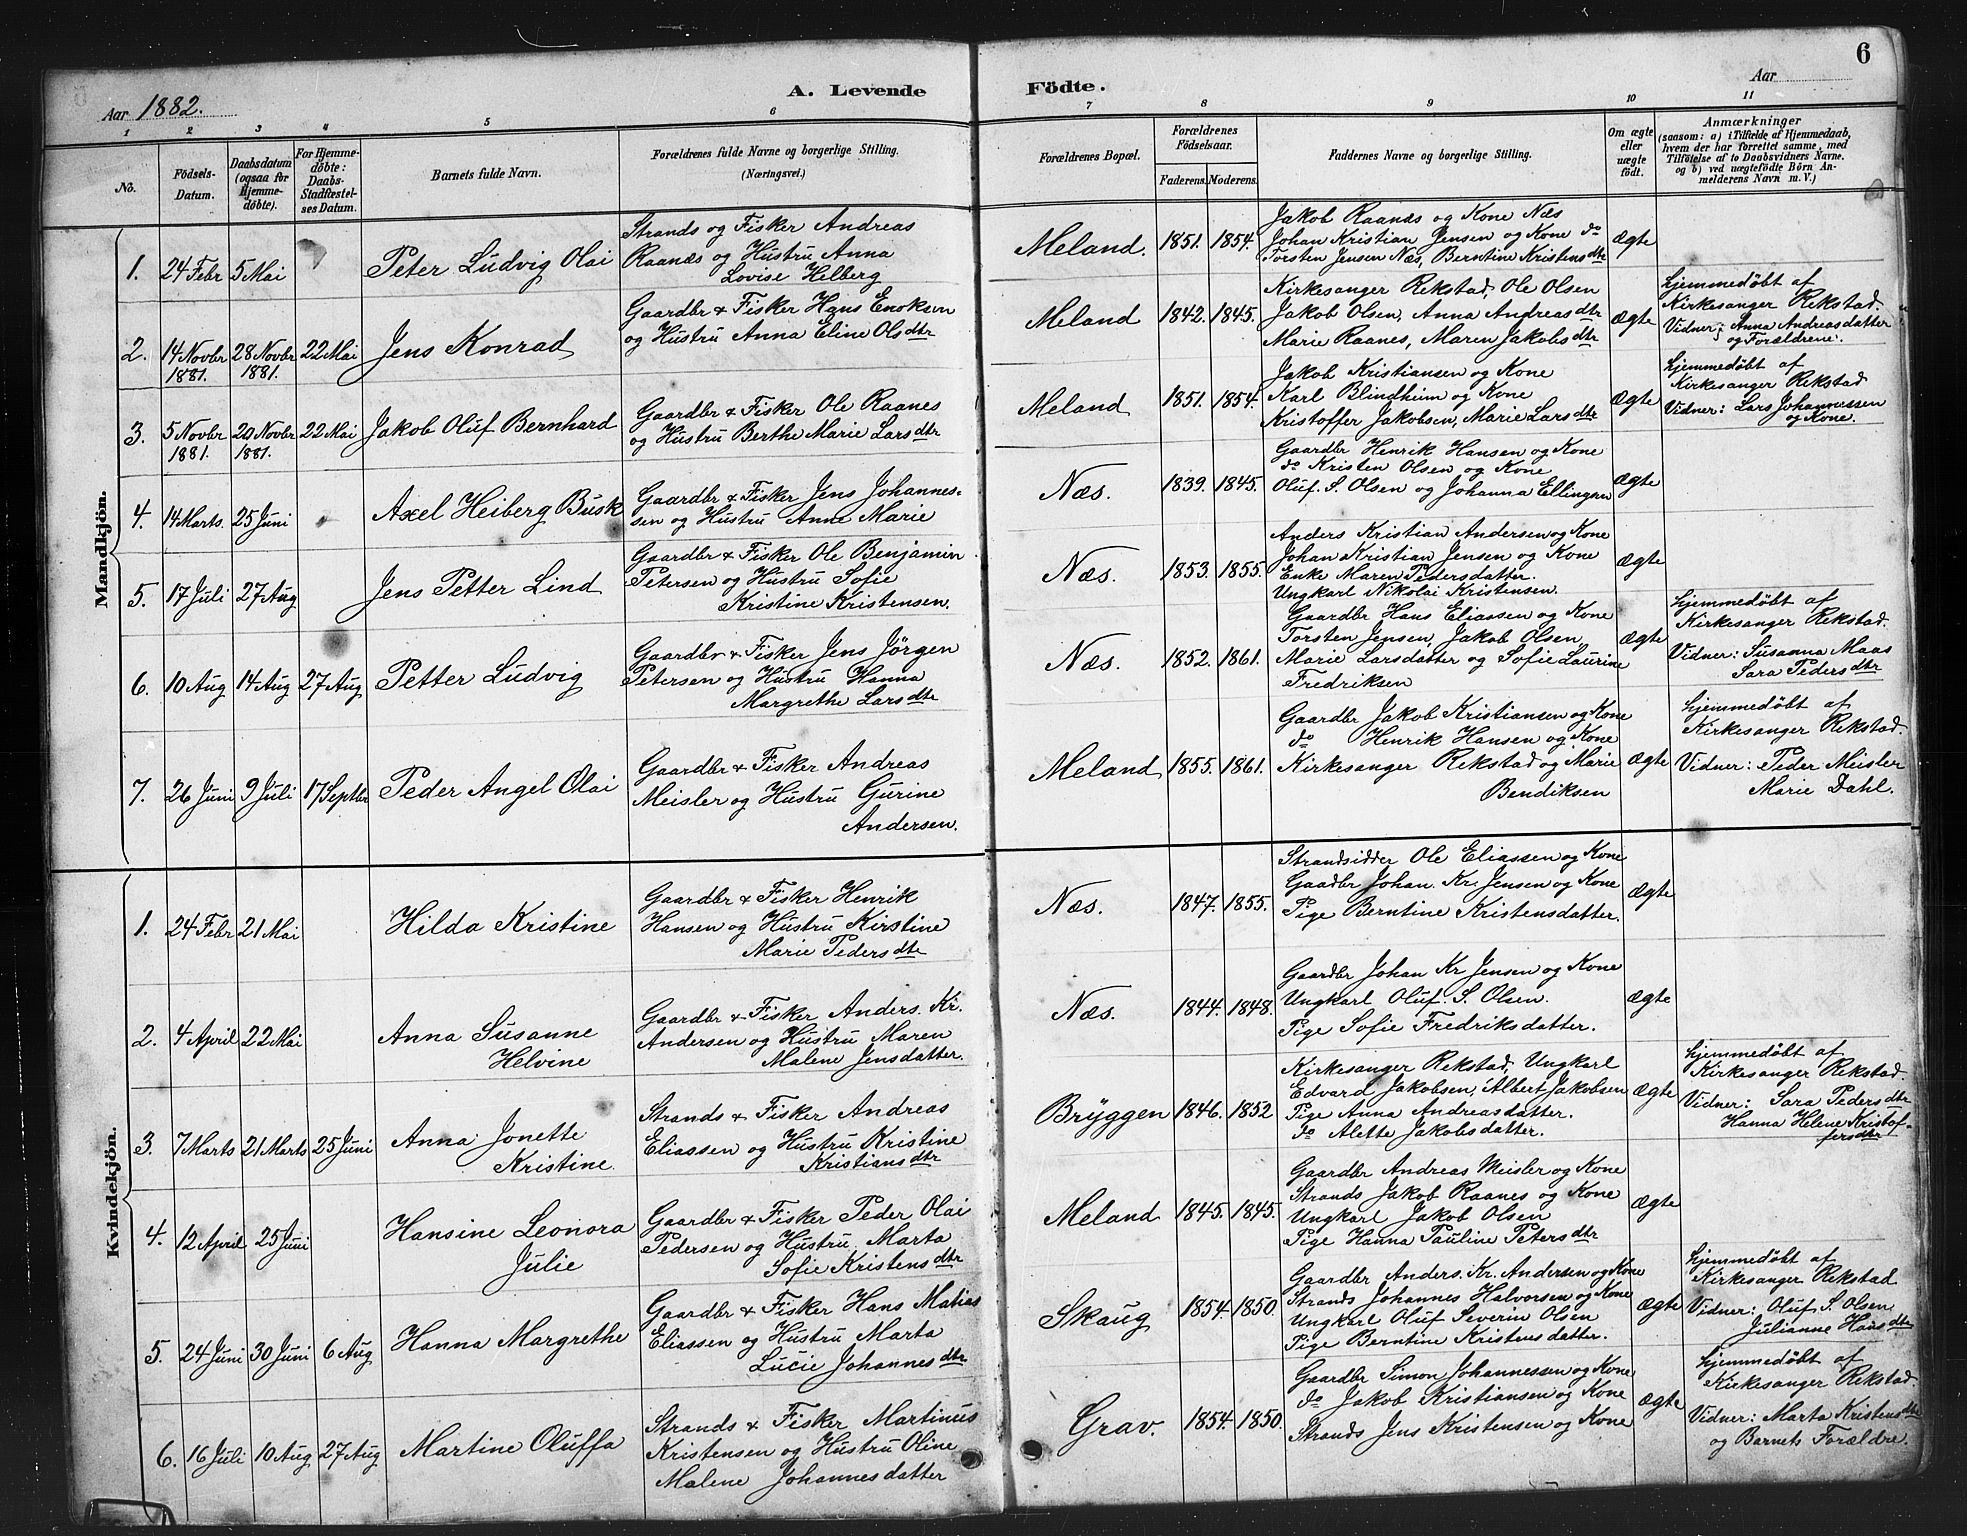 6
Aar 1882.
A. Levende Födte.
Aar
1 2 3 4 5 6 7 8 9 10 11
No.
Födsels-Datum.
Daabsdatum (ogsaa for Hjemme-döbte).
For Hjemme-döbte: Daabs-Stadfæstel-ses Datum.
Barnets fulde Navn.
Forældrenes fulde Navne og borgerlige Stilling.
(Næringsvei.)
Forældrenes Bopæl.
Forældrenes Födselsaar.
Faderens. Moderens.
Faddernes Navne og borgerlige Stilling.
Om ægte eller uægte födt.
Anmærkninger
(saasom: a) i Tilfælde af Hjemmedaab, hvem der har forrettet samme, med Tilföielse af to Daabsvidners Navne. og b) ved uægtefödte Börn An-melderens Navn m. V.)
Mandkjön.
1. 24 Febr 5 Mai Peter Ludvig Olai
Strands og Fisker Andreas
Raanæs og Hustru Anna
Lovise Helberg
Meland. 1851. 1854.
Jakob Raanæs og Kone Næs
Johan Kristian Jensen og Kone do
Torsten Jensen Næs, Berntine Kristensdtr
Ægte
2. 14 Novbr 1881. 28 Novbr 1881. 22 Mai Jens Konrad
Gaardbr & Fisker Hans Enoksen
og Hustru Anna Eline Olsdtr
Meland 1842. 1845.
Kirkesanger Rekstad, Ole Olsen
Jakob Olsen, Anna Andreasdtr
Marie Raanes, Maren Jakobsdtr
Ægte
Hjemmedøbt af
Kirkesanger Rekstad.
Vidner: Anna Andreasdatter
og Forældrene.
3. 5 Novbr 1881. 20 Novbr 1881. 22 Mai Jakob Oluf Bernhard
Gaardbr & Fisker Ole Raanes
og Hustru Berthe Marie Larsdtr
Meland 1851. 1854.
Jakob Kristiansen og Kone
Karl Blindheim og Kone
Kristoffer Jakobsen, Marie Larsdtr
Ægte
Hjemmedøbt af
Kirkesanger Rekstad
Vidner: Lars Johannessen
og Kone.
4. 14 Marts. 25 Juni Axel Heiberg Busk
Gaardbr & Fisker Jens Johannes-
sen og Hustru Anne Marie
Næs. 1839. 1845.
Gaardbr Henrik Hansen og Kone
do Kristen Olsen og Kone
Oluf. S. Olsen og Johanna Ellingsen
Ægte
5. 17 Juli 27 Aug Jens Petter Lind
Gaardbr & Fisker Ole Benjamin
Petersen og Hustru Sofie
Kristine Kristensen.
Næs. 1853. 1855.
Anders Kristian Andersen og Kone
Johan Kristian Jensen og Kone
Enke Maren Pedersdatter.
Ungkarl Nikolai Kristensen.
Ægte
6. 10 Aug 14 Aug 27 Aug Petter Ludvig
Gaardbr & Fisker Jens Jörgen
Petersen og Hustru Hanna
Margrethe Larsdtr
Næs. 1852. 1861.
Gaardbr Hans Eliassen og Kone
Torsten Jensen, Jakob Olsen
Marie Larsdatter og Sofie Laurine
Fredriksen
Ægte
Hjemmedøbt af
Kirkesanger Rekstad.
Vidner: Susanna Maas
Sara Pedersdtr
7. 26 Juni 9 Juli 17 Septbr Peder Angel Olai
Gaardbr & Fisker Andreas
Meisler og Hustru Gurine
Andersen.
Meland 1855. 1861.
Gaardbr Jakob Kristiansen og Kone
do Henrik Hansen og Kone
Kirkesanger Rekstad og Marie
Bendiksen
Ægte
Hjemmedøbt af
Kirkesanger Rekstad.
Vidner: Peder Meisler
Marie Dahl.
Kvindekjön.
1. 24 Febr 21 Mai Hilda Kristine
Gaardbr & Fisker Henrik
Hansen og Hustru Kirstine
Marie Pedersdtr
Næs. 1847. 1855.
Strandsidder Ole Eliassen og Kone
Gaadbr Johan. Kr. Jensen og Kone
Pige Berntine Kristensdatter.
Ægte
2. 4 April 22 Mai Anna Susanne
Helvine
Gaardbr & Fisker Anders. Kr.
Andersen og Hustru Maren
Malene Jensdatter.
Næs. 1844. 1848.
Gaardbr Johan Kr Jensen og Kone
Ungkarl Oluf. S. Olsen.
Pige Sofie Fredriksdatter.
Ægte
3. 7 Marts 21 Marts 25 Juni Anna Jonette
Kristine
Strands & Fisker Andreas
Eliassen og Hustru Kristine
Kristiansdtr
Bryggen 1846. 1852
Kirkesanger Rekstad, Ungkarl
Edvard Jakobsen, Albert Jakobsen
Pige Anna Andreasdatter.
do Alette Jakobsdatter.
Ægte
Hjemmedøbt af
Kirkesanger Rekstad.
Vidner: Sara Pedersdtr
Hanna Helene Kristof-
fersdtr
4. 12 April 25 Juni Hansine Leonora
Julie
Gaardbr & Fisker Peder Olai
Pedersen og Hustru Marta
Sofie Kristensdtr
Meland 1845. 1845.
Gaardbr Andreas Meisler og Kone
Strands Jakob Raanes og Kone
Ungkarl Jakob Olsen
Pige Hanna Pauline Petersdtr
Ægte
5. 24 Juni 30 Juni 6 Aug Hanna Margrethe
Gaardbr & Fisker Hans Matias
Eliassen og Hustru Marta
Lucie Johannesdtr
Skaug 1854. 1850.
Gaardbr Anders. Kr. Andersen og Kone
Strands Johannes Halvorsen og Kone
Ungkarl Oluf Severin Olsen
Pige Berntine Kristensdatter.
Ægte
Hjemmedøbt af
Kirkesanger Rekstad
Vidner: Oluf S. Olsen
Julianne Hansdtr
6. 16 Juli 10 Aug 27 Aug Martine Oluffa
Strands & Fisker Martinus
Kristensen og Hustru Oline
Malene Johannesdatter
Grav. 1854. 1850.
Gaardbr Simon Johannessen og Kone
do Jakob Kristiansen og Kone
Strands Jens Kristensen og Kone
Ægte
Hjemmedøbt af
Kirkesanger Rekstad.
Vidner: Marta Kristensdtr
og Barnets Forældre.